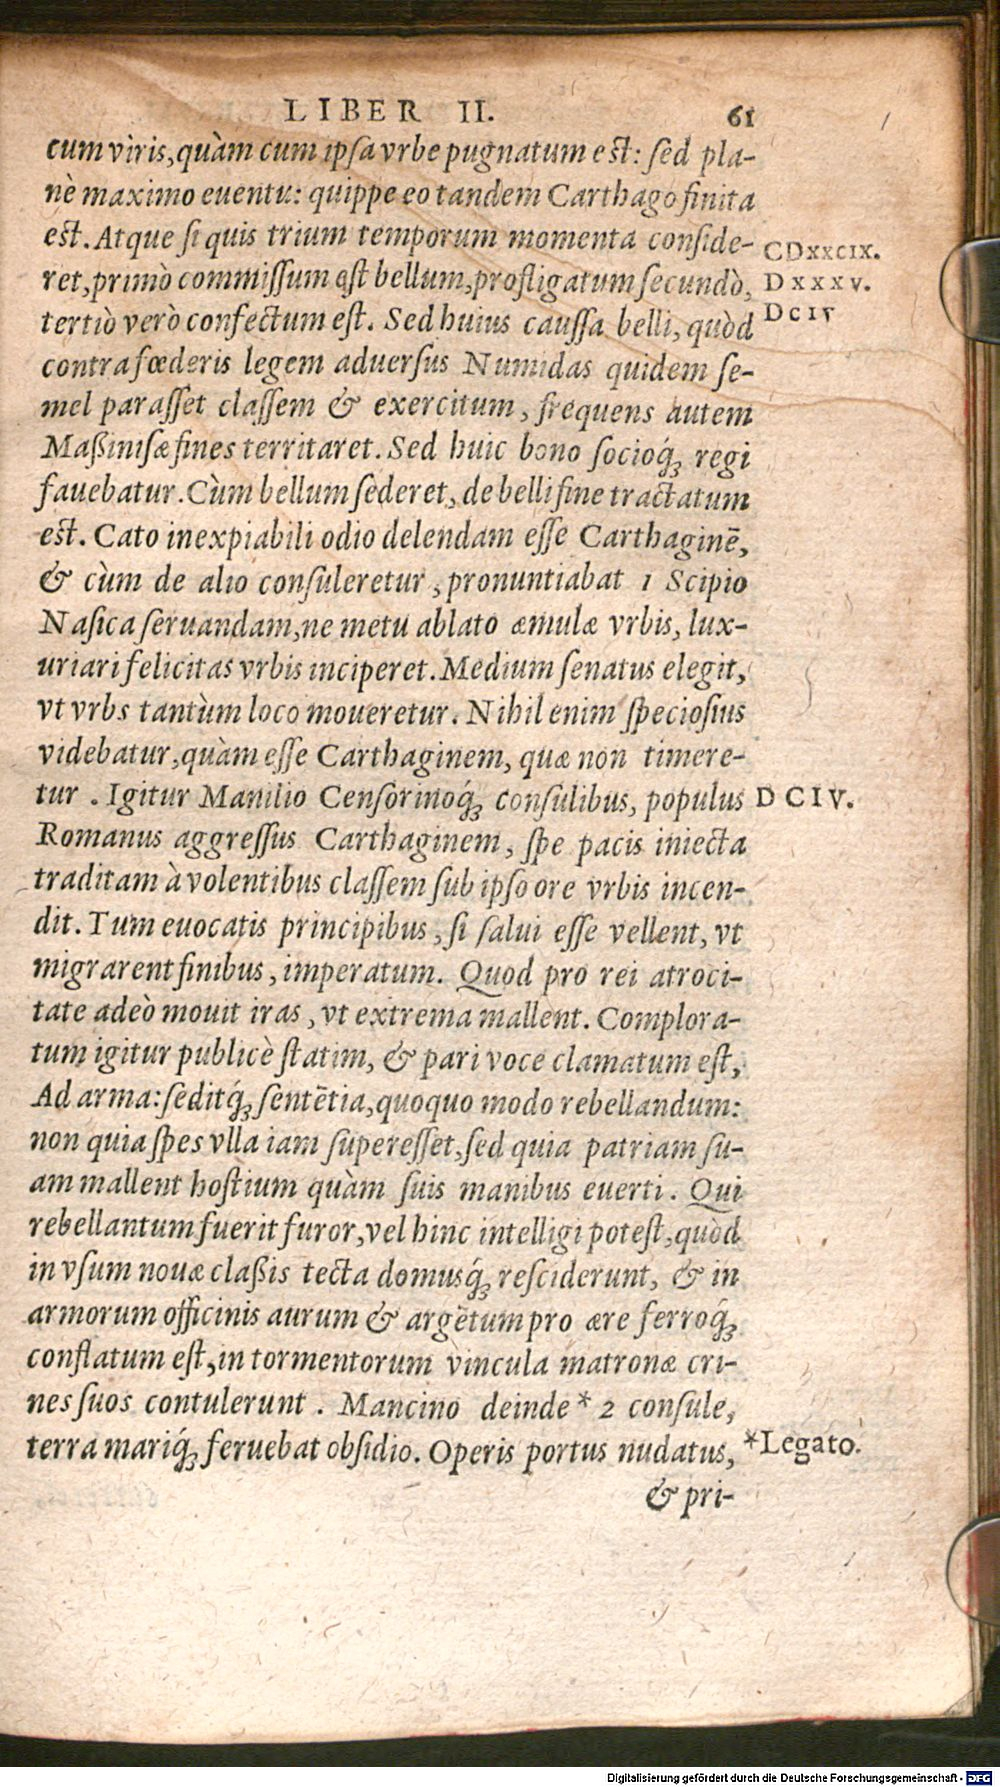 LIBER II. 61
cum viris, quàm cum ipsa vrbe pugnatum est: sed pla-
nè maximo euentu: quippe eo tandem Carthago finita
est. Atque si quis trium temporum momenta conside-
CDXXCIX.
ret, primò commissum est bellum, profligatum secundò,
DXXXV.
tertiò verò confectum est. Sed huius caussa belli, quòd
DCIV
contra fœderis legem aduersus Numidas quidem se-
mel parasset classem & exercitum, frequens autem
Maßinisæ fines territaret. Sed huic bono socioq́; regi
fauebatur. Cùm bellum sederet, de belli fine tractatum
est. Cato inexpiabili odio delendam esse Carthaginē,
& cùm de alio consuleretur, pronuntiabat 1 Scipio
Nasica seruandam, ne metu ablato æmulæ vrbis, lux-
uriari felicitas vrbis inciperet. Medium senatus elegit,
vt vrbs tantùm loco moueretur. Nihil enim speciosius
videbatur, quàm esse Carthaginem, quæ non timere-
tur. Igitur Manilio Censorinoq́; consulibus, populus
DCIV.
Romanus aggressus Carthaginem, spe pacis iniecta
traditam à volentibus classem sub ipso ore vrbis incen-
dit. Tum euocatis principibus, si salui esse vellent, vt
migrarent finibus, imperatum. Quod pro rei atroci-
tate adeò mouit iras, vt extrema mallent. Complora-
tum igitur publicè statim, & pari voce clamatum est,
Ad arma: seditq́; sentētia, quoquo modo rebellandum:
non quia spes vlla iam superesset, sed quia patriam su-
am mallent hostium quàm suis manibus euerti. Qui
rebellantum fuerit furor, vel hinc intelligi potest, quòd
in vsum nouæ claßis tecta domusq́; resciderunt, & in
armorum officinis aurum & argētum pro ære ferroq́;
conflatum est, in tormentorum vincula matronæ cri-
nes suos contulerunt. Mancino deinde * 2 consule,
terra mariq́; feruebat obsidio. Operis portus nudatus,
*Legato.
& pri-
Digitalisierung gefördert durch die Deutsche Forschungsgemeinschaft - DFG